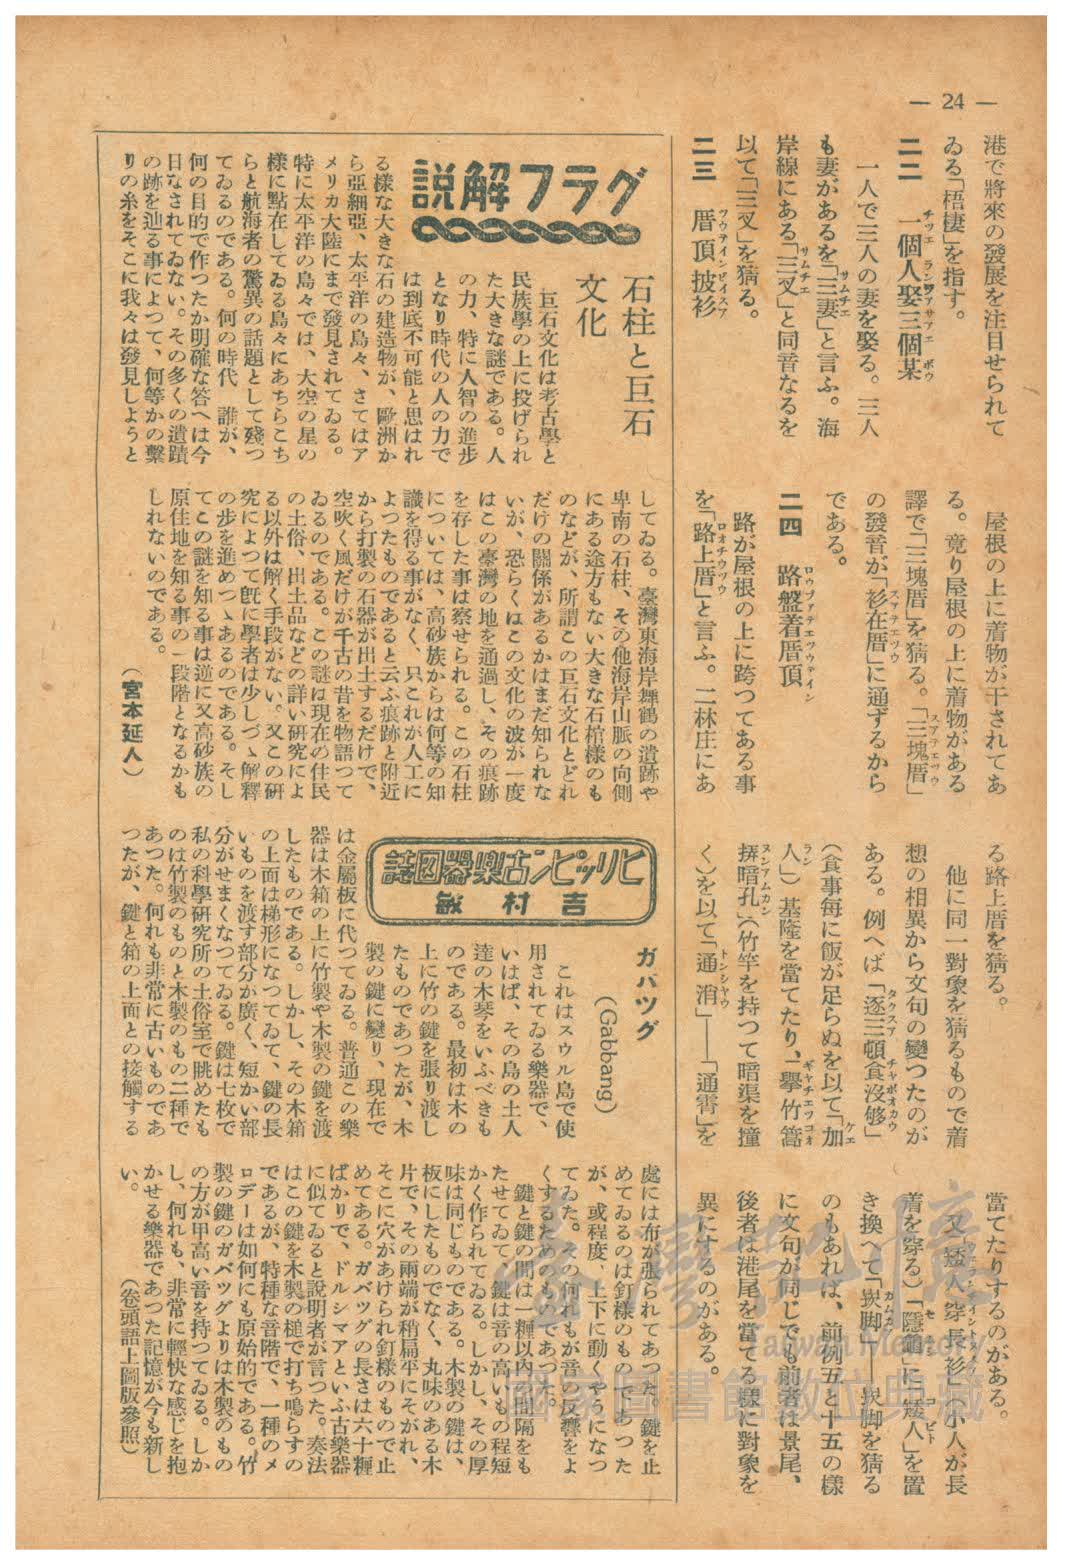 — 24 —
港で將來の發展を注目せられて
ゐる「梧棲」を指す。
二二　一個人娶三個某
一人で三人の妻を娶る。三人
も妻があるを「三妻」と言ふ。海
岸線にある「三叉」と同音なるを
以て「三叉」を猜る。
二三　厝頂披衫
屋根の上に着物が干されてあ
る。竟り屋根の上に着物がある
譯で「三塊厝」を猜る。「三塊厝」
の發音が「衫在厝」に通ずるから
である。
二四　路盤着厝頂
路が屋根の上に跨つてある事
を「路上厝」と言ふ。二林庄にあ
る路上厝を猜る。
他に同一對象を猜るもので着
想の相異から文句の變つたのが
ある。例へば「逐三頓食沒够」
(食事毎に飯が足らぬを以て「加
人」)基隆を當てたり、「擧竹篙
揬暗孔」(竹竿を持つて暗渠を撞
く)を以て「通消」——「通霄」を
當てたりするのがある。
又「矮人穿長衫」(小人が長
着を穿る)「隱龜」に「矮人」を置
き換へて「崁脚」——崁脚を猜る
のもあれば、前例五と十五の樣
に文句が同じでも前者は景尾、
後者は港尾を當てる樣に對象を
異にするのがある。
グラフ解説
石柱と巨石
文化
巨石文化は考古學と
民族學の上に投げられ
た大きな謎である。人
の力、特に人智の進步
となり時代の人の力で
は到底不可能と思はれ
る樣な大きな石の建造物が、歐洲か
ら亞細亞、太平洋の島々、さてはア
メリカ大陸にまで發見されてゐる。
特に太平洋の島々では、大空の星の
樣に點在してゐる島々にあちらこち
らと航海者の驚異の話題として殘つ
てゐるのである。何の時代　誰が、
何の目的で作つたか明確な答へは今
日なされてゐない。その多くの遺蹟
の跡を辿る事によつて、何等かの繫
りの糸をそこに我々は發見しようと
してゐる。臺灣東海岸舞鶴の遺跡や
卑南の石柱、その他海岸山脈の向側
にある途方もない大きな石棺樣のも
のなどが、所謂この巨石文化とどれ
だけの關係があるかはまだ知られな
いが、恐らくはこの文化の波が一度
はこの臺灣の地を通過し、その痕跡
を存した事は察せられる。この石柱
については、高砂族からは何等の知
識を得る事がなく、只これが人工に
よつたものであると云ふ痕跡と附近
から打製の石器が出土するだけで、
空吹く風だけが千古の昔を物語つて
ゐるのである。この謎は現在の住民
の土俗、出土品などの詳い研究によ
る以外は解く手段がない。又この研
究によつて旣に學者は少しづゝ解釋
の步を進めつゝあるのである。そし
てこの謎を知る事は逆に又高砂族の
原住地を知る事の一段階となるかも
しれないのである。
(宮本延人)
ヒリッピン古樂器圖誌
吉村敏
ガバツグ
(Gabbang)
これはスウル島で使
用されてゐる樂器で、
いはば、その島の土人
達の木琴をいふべきも
のである。最初は木の
上に竹の鍵を張り渡し
たものであつたが、木
製の鍵に變り、現在で
は金屬板に代つてゐる。普通この樂
器は木箱の上に竹製や木製の鍵を渡
したものである。しかし、その木箱
の上面は梯形になつてゐて、鍵の長
いものを渡す部分が廣く、短かい部
分がせまくなつてゐる。鍵は七枚で
私の科學硏究所の土俗室で眺めたも
のは竹製のものと木製のもの二種で
あつた。何れも非常に古いものであ
つたが、鍵と箱の上面との接觸する
處には布が張られてあつた。鍵を止
めてゐるのは釘樣のものであつた
が、或程度、上下に動くやうになつ
てゐた。その何れもが音の反響をよ
くするためのものであつた。
鍵と鍵の間は一糎以內の間隔をも
たせてゐて、鍵は音の高いもの程短
かく作られてゐる。しかし、その厚
味は同じものである。木製の鍵は、
板にしたものでなく、丸味のある木
片で、その兩端が稍扁平にそがれ、
そこに穴があけられ釘樣のもので止
めてある。ガバツグの長さは六十糎
ばかりで、ドルシマアといふ古樂器
に似てゐると說明者が言つた。奏法
はこの鍵を木製の槌で打ち鳴らすの
であるが、特種な音階で、一種のメ
ロデーは如何にも原始的である。竹
製の鍵のガバツグよりは木製のもの
の方が甲高い音を持つてゐる。しか
し、何れも、非常に輕快な感じを抱
かせる樂器であつた記憶が今も新し
い。
(卷頭語上圖版參照)
臺灣記憶
Taiwan Memory
國家圖書館數位典藏